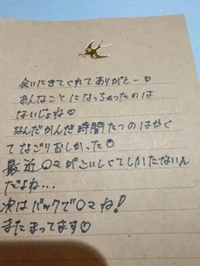 会いにきてくれてありがとー♡
あんなことになっちゃったのは
ないじょね♡
なんだかんだ時間たつのはやく
てなごりおしかった♡
最近〇マがこいしくてしかたないん
だよね…
次はバックで〇マね!
またまってます♡